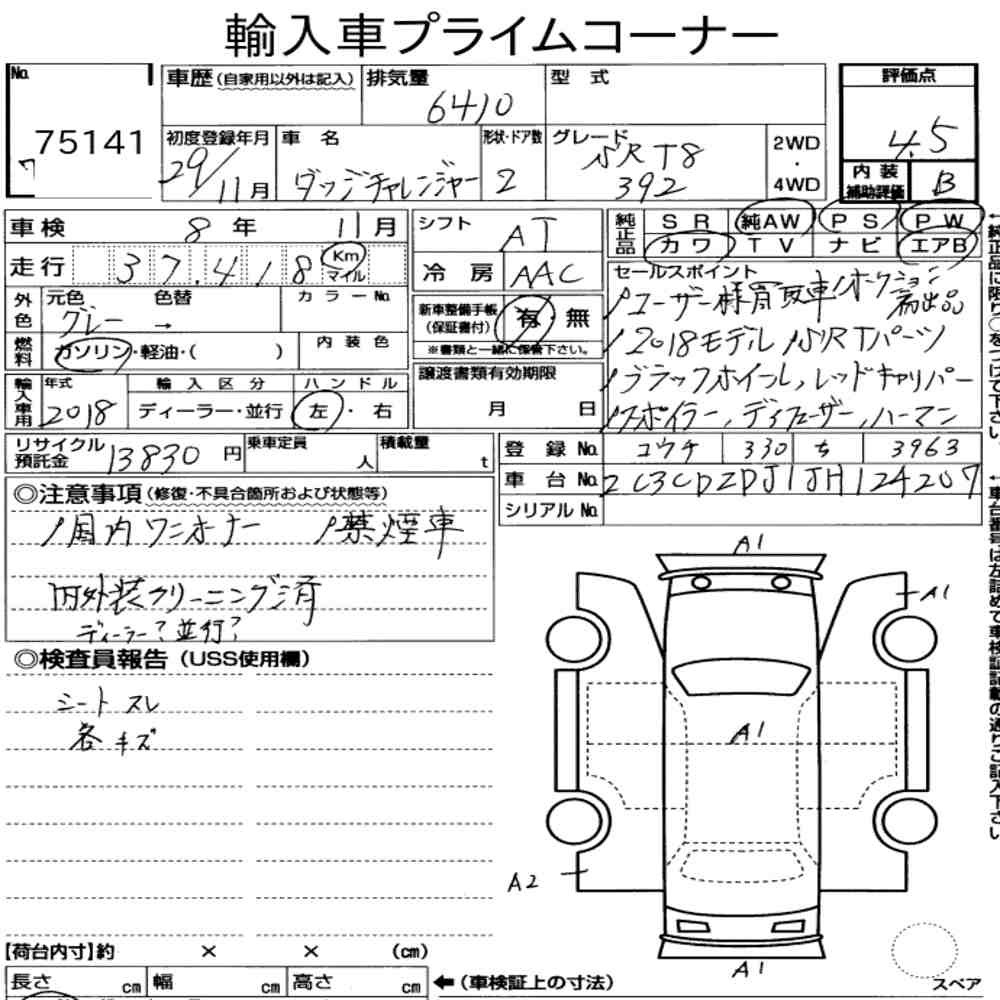 輸入車プライムコーナー
No. 75141
7
車歴(自家用以外は記入) 排気量 6410 型式
評価点 4.5
初度登録年月 29/11月 車名 ダッジチャレンジャー 形状・ドア数 2 グレード SRT8 392 2WD・4WD
内装補助評価 B
車検 8年 11月 シフト AT
純正品 SR 純AW PS PW
カワ TV ナビ エアB
走行 37,418 Km マイル 冷房 AAC
外色 元色 グレー → 色替 カラーNo.
新車整備手帳(保証書付) 有 無
※書類と一緒に保管下さい。
セールスポイント
/ユーザー様買取車/オークション初出品
/2018モデル/SRTパーツ
/ブラックホイール,レッドキャリパー
/スポイラー,ディフューザー,ハーマン
燃料 ガソリン・軽油・( ) 内装色
譲渡書類有効期限 月 日
輸入車用 年式 2018 輸入区分 ディーラー・並行 ハンドル 左・右
リサイクル預託金 13830円 乗車定員 人 積載量 t
登録No. コウチ 330 ち 3963
車台No. 2C3CDZDJ1JH124207
シリアルNo.
◎注意事項(修復・不具合箇所および状態等)
/国内ワンオーナー /禁煙車
内外装クリーニング済
ディーラー?並行?
◎検査員報告(USS使用欄)
シート スレ
各 キズ
A1
A1
A1
A2
A1
スペア
【荷台内寸】約 × × (cm)
長さ cm 幅 cm 高さ cm ←(車検証上の寸法)
←純正品に限り○をつけて下さい。
←車台番号は左詰めで車検証記載の通りご記入下さい。